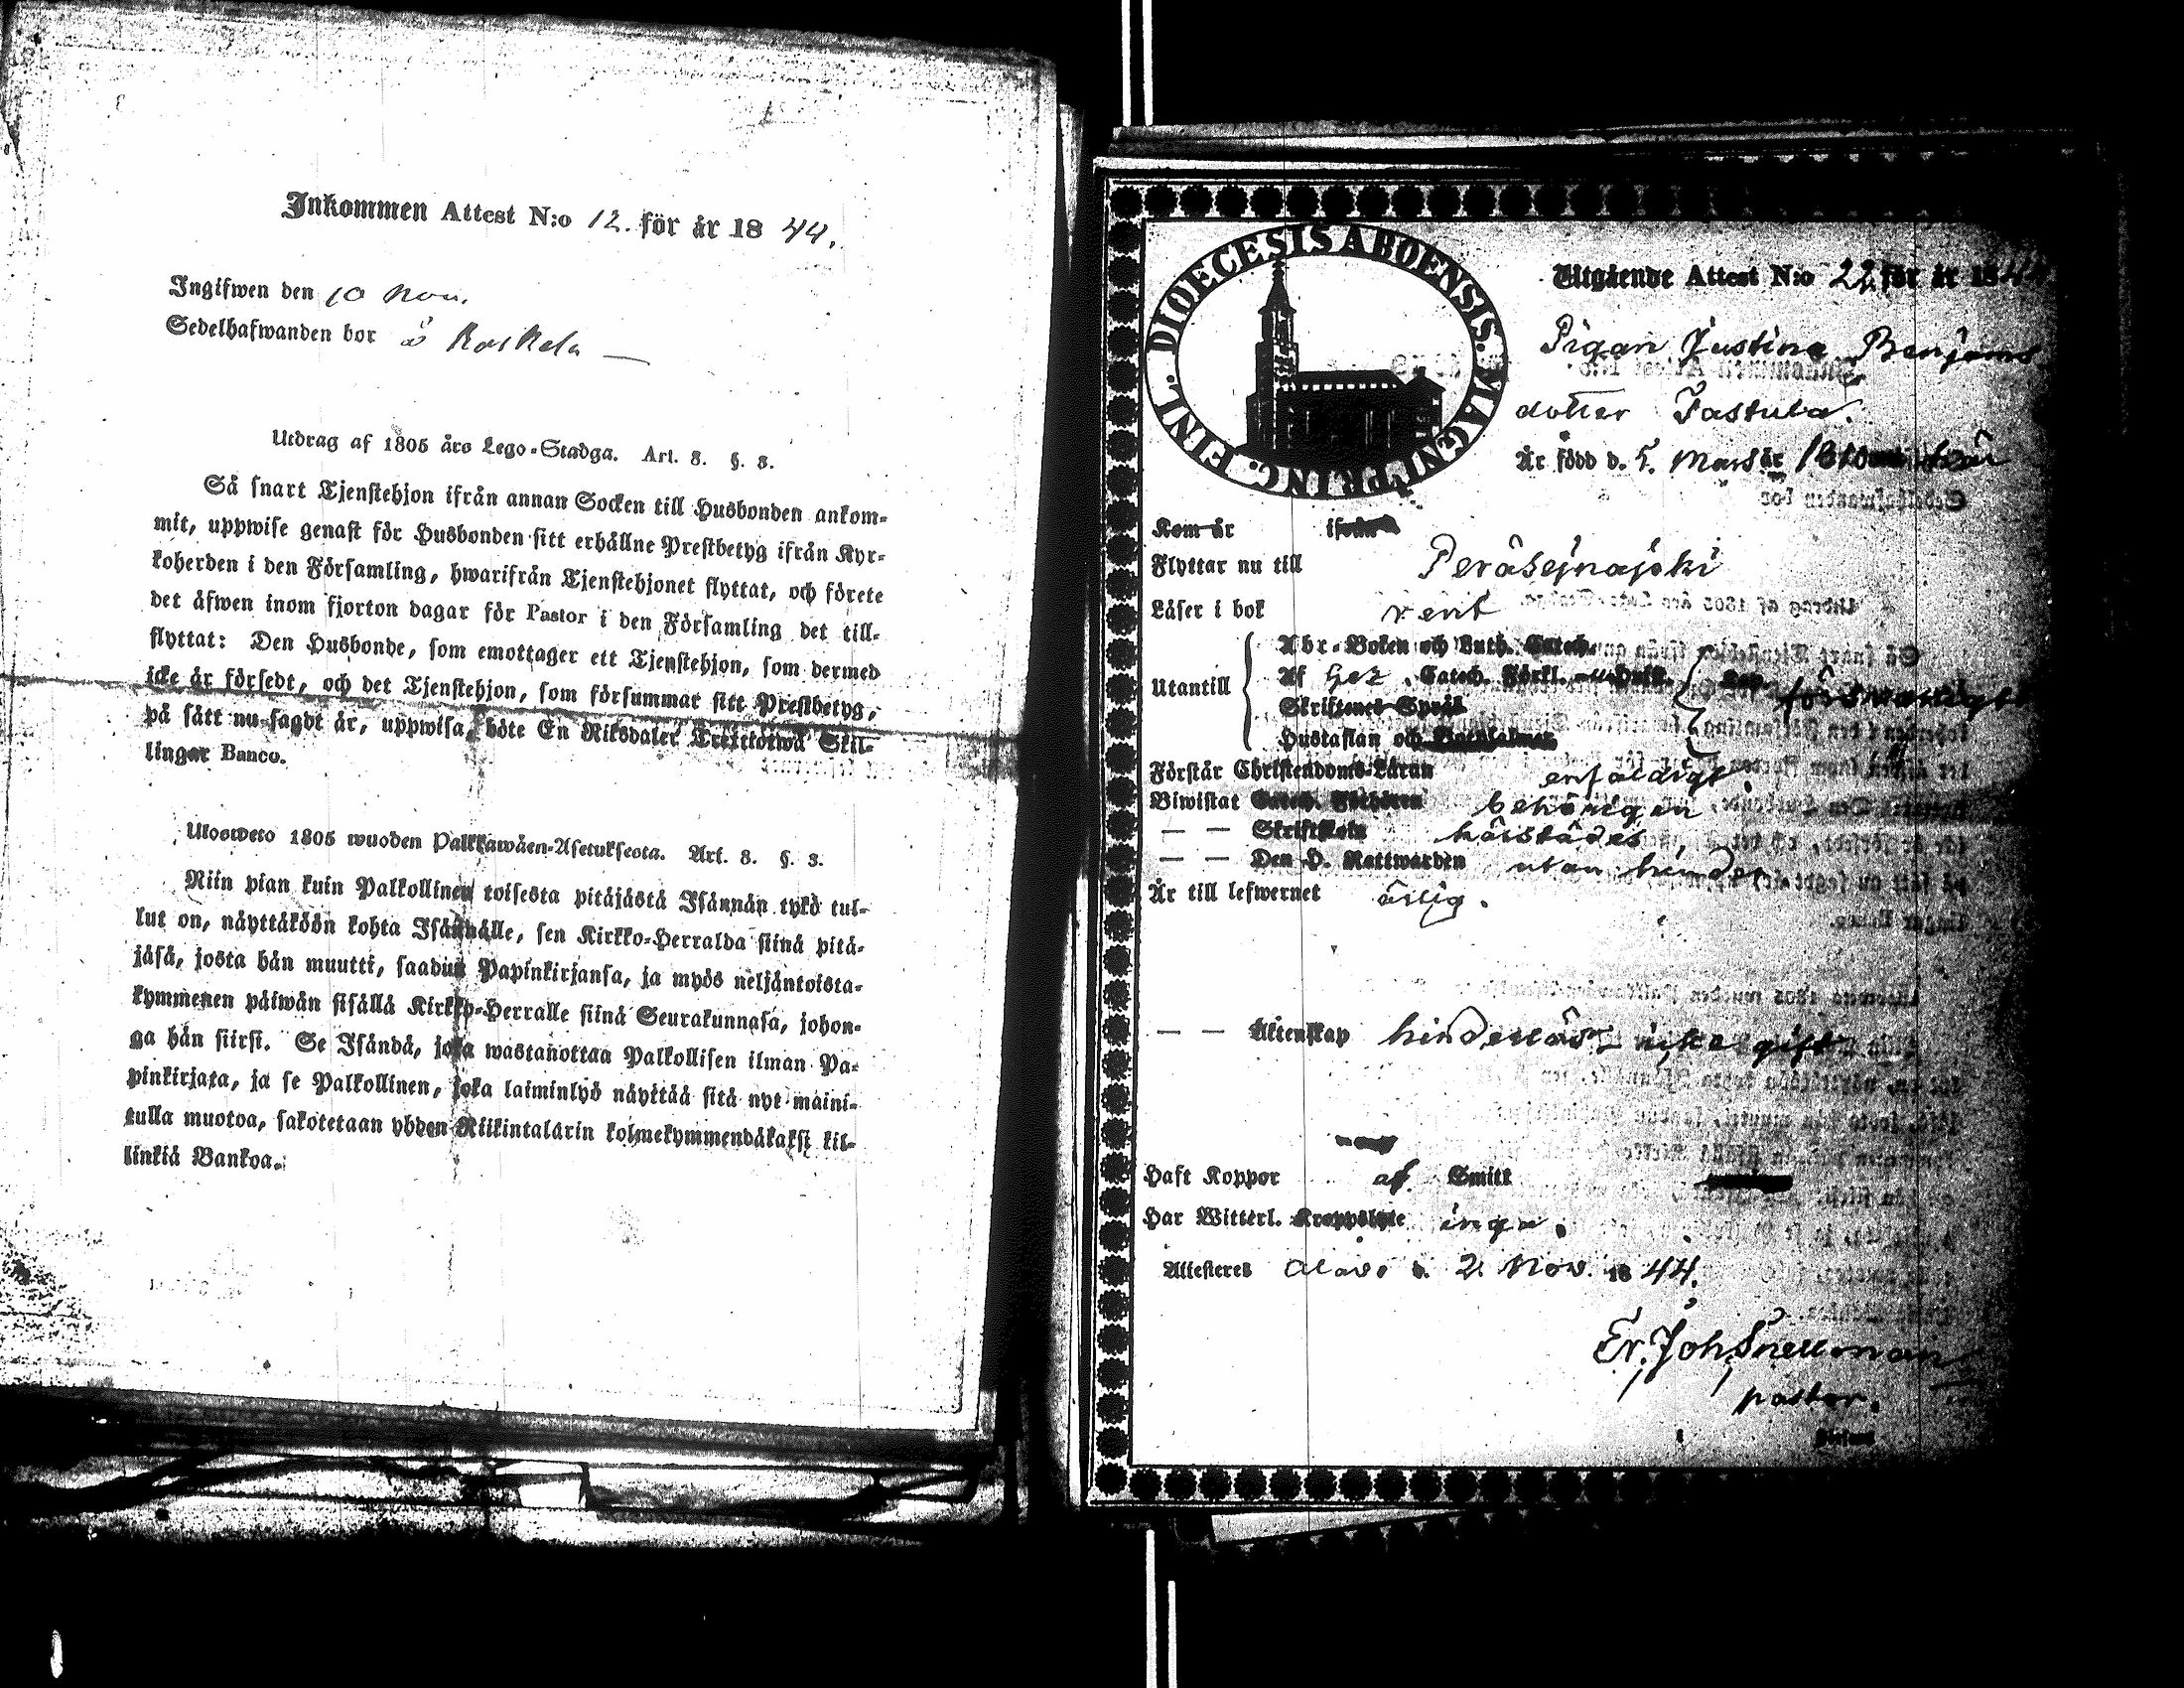 Inkommen Attest N:o 12. för år 18 44.
Ingifwen den 10 Nov.
Sedelhafwanden bor å Koskela
Utdrag af 1805 års Lego-Stadga. Art. 8. §. 3.
Så snart Tjenstehjon ifrån annan Socken till Husbonden ankom-
mit, uppwise genast för Husbonden sitt erhållne Prestbetyg ifrån Kyr-
koherden i den Församling, hwarifrån Tjenstehjonet flyttat, och förete
det äfwen inom fjorton dagar för Pastor i den Församling det till-
flyttat: Den Husbonde, som emottager ett Tjenstehjon, som dermed
icke är försedt, och det Tjenstehjon, som försummar sitt Prestbetyg,
på sätt nu sagdt är, uppwisa, böte En Riksdaler Trettiotwå Skil-
lingar Banco.
Ulosweto 1805 wuoden Palkkawäen-Asetuksesta. Art. 8. §. 3.
Niin pian kuin Palkollinen toisesta pitäjästä Isännän tykö tul-
lut on, näyttäköön kohta Isännälle, sen Kirkko-Herralda siinä pitä-
jäsä, josta hän muutti, saadun Papinkirjansa, ja myös neljäntoista-
kymmenen päiwän sisällä Kirkko-Herralle siinä Seurakunnasa, johon-
ga hän siirsi. Se Isändä, joka wastanottaa Palkollisen ilman Pa-
pinkirjata, ja se Palkollinen, joka laiminlyö näyttää sitä nyt maini-
tulla muotoa, sakotetaan yhden Riikintalarin kolmekymmendäkaksi kil-
linkiä Bankoa.
DIOECESIS ABOENSIS. MAGNI PRINC. FINL.
Utgående Attest N:o 22 för år 184
Pigan Justina Benjams
dotter Jastula.
Är född d. 5. Mars år 1810
Kom år ifrån
Flyttar nu till Peräsejnäjoki
Läser i bok rent
Abc-Boken och Luth. Catech.
Utantill Af Catech. Förkl. försvarligt
Skriftenes Språk
Hustaflan och
Förstår Christendoms-Läran enfaldigt
Biwistat Catech. Förhören behörigen
— — Skriftskola härstädes
— — Den H. Nattwarden utan hinder
Är till lefwernet ärlig.
— — Äktenskap hinderlös, icke gift
Haft Koppor af Smitt
Har Witterl. Kroppslyte inga.
Attesteres Alavo d. 2. Nov. 18 44.
Er. Joh. Snellman
pastor.